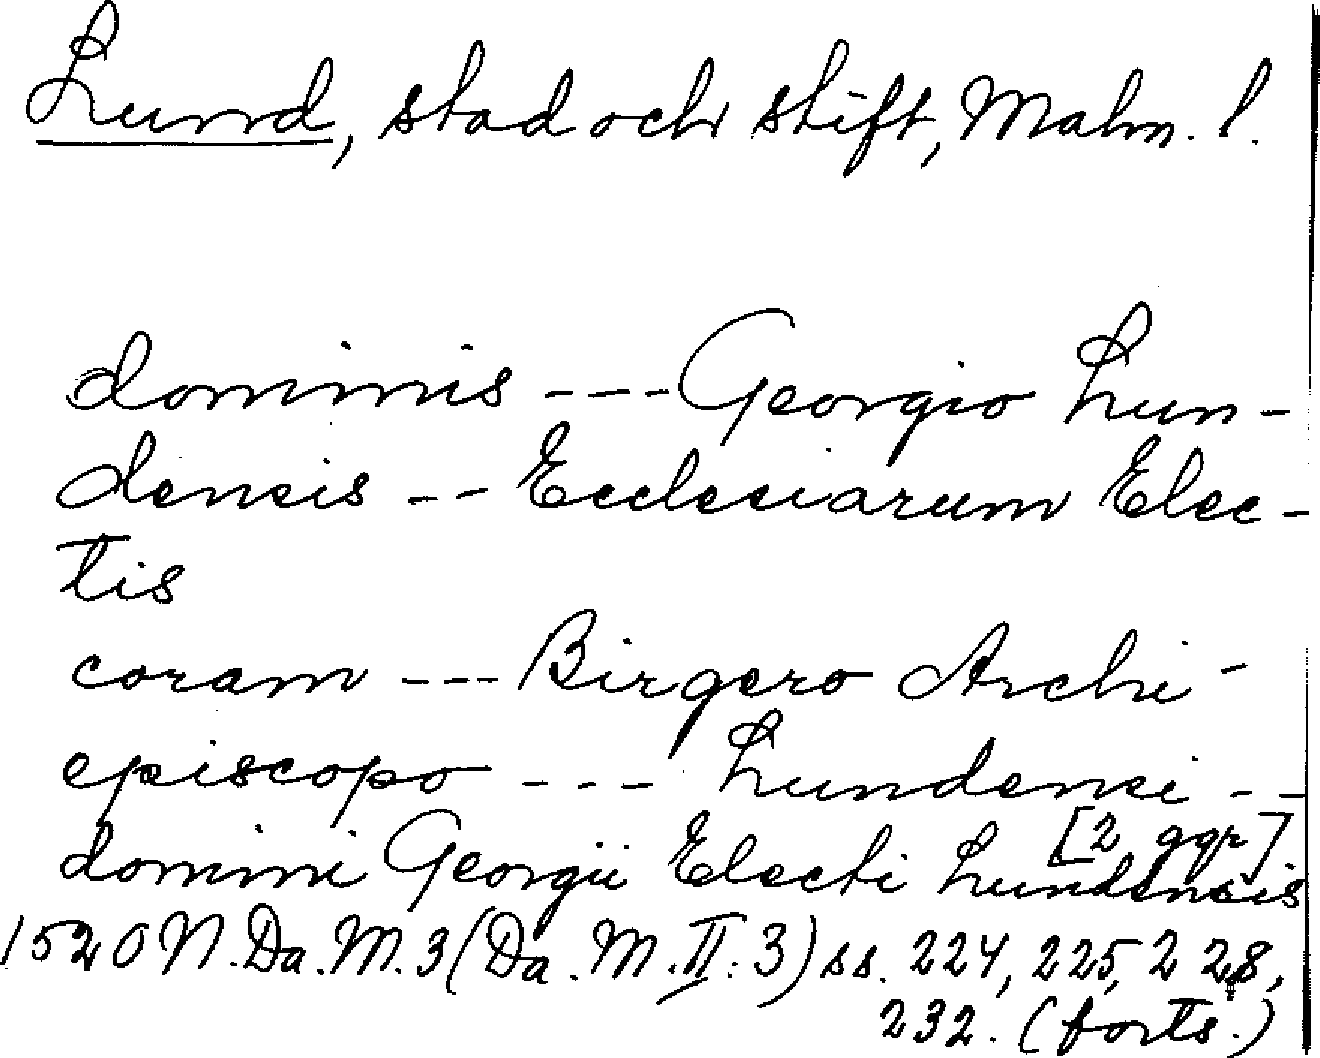 Lund, stad och stift, Malm. l.
dominis --- Georgio Lun-
densis -- Ecclesiarum Elec-
tis
coram --- Birgero Archi-
episcopo --- Lundensi --
[2 ggr]
domini Georgii Electi Lundensis
1520 N. Da. M. 3 (Da. M. II: 3) ss. 224, 225, 228,
232. (forts.)